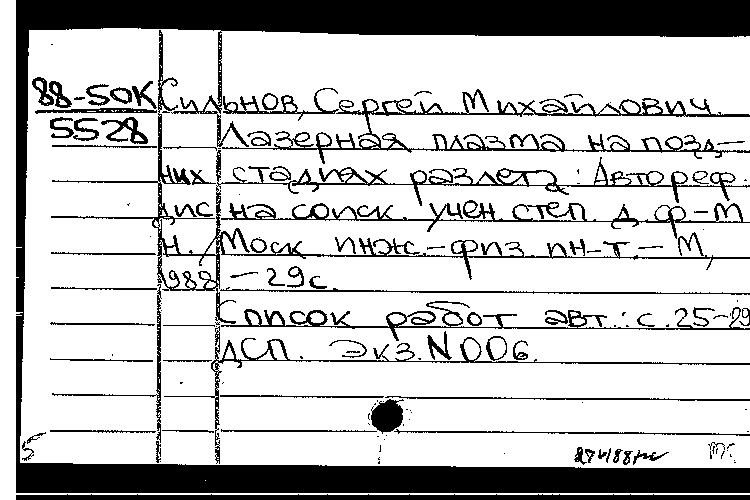 88-50К Сильнов, Сергей Михайлович.
5528 Лазерная плазма на позд-
них стадиях разлета : Автореф.
дис на соиск. учен. степ. д. ф-м
н. / Моск инж.-физ. ин-т. - М,
1988 - 29 с.
Список работ авт.: с. 25-29
ДСП. Экз. N 006.
5